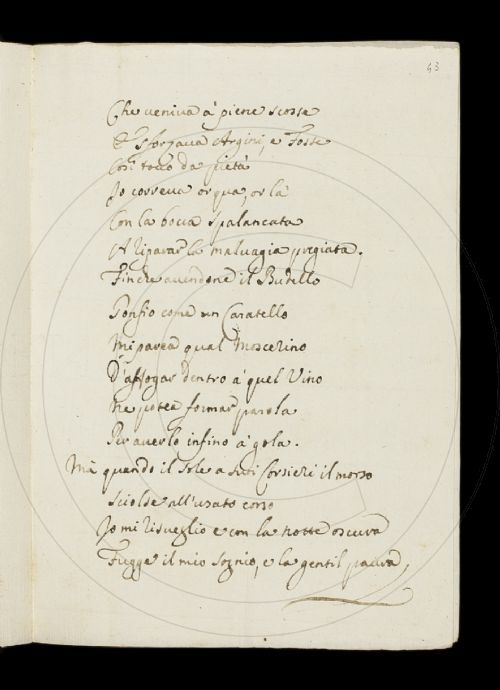 43
Che veniva à piene scosse
E sforzava Argini, e Fosse
Così tocco da pietà
Io correva or qua, or là
Con la bocca spalancata
A riparar la malvagia
Finche avendone il Budello
Gonfio come un Caratello
Mi parea qual Moscerino
D'affogar dentro à quel Vino
Ne potea formar parola
Per averlo infino à gola.
Mà quando il Sole a suoi Corsieri il morso
Sciolse all'usato corso
Io mi risveglio e con la notte oscura
Fugge il mio sogno, e la gentil paura,